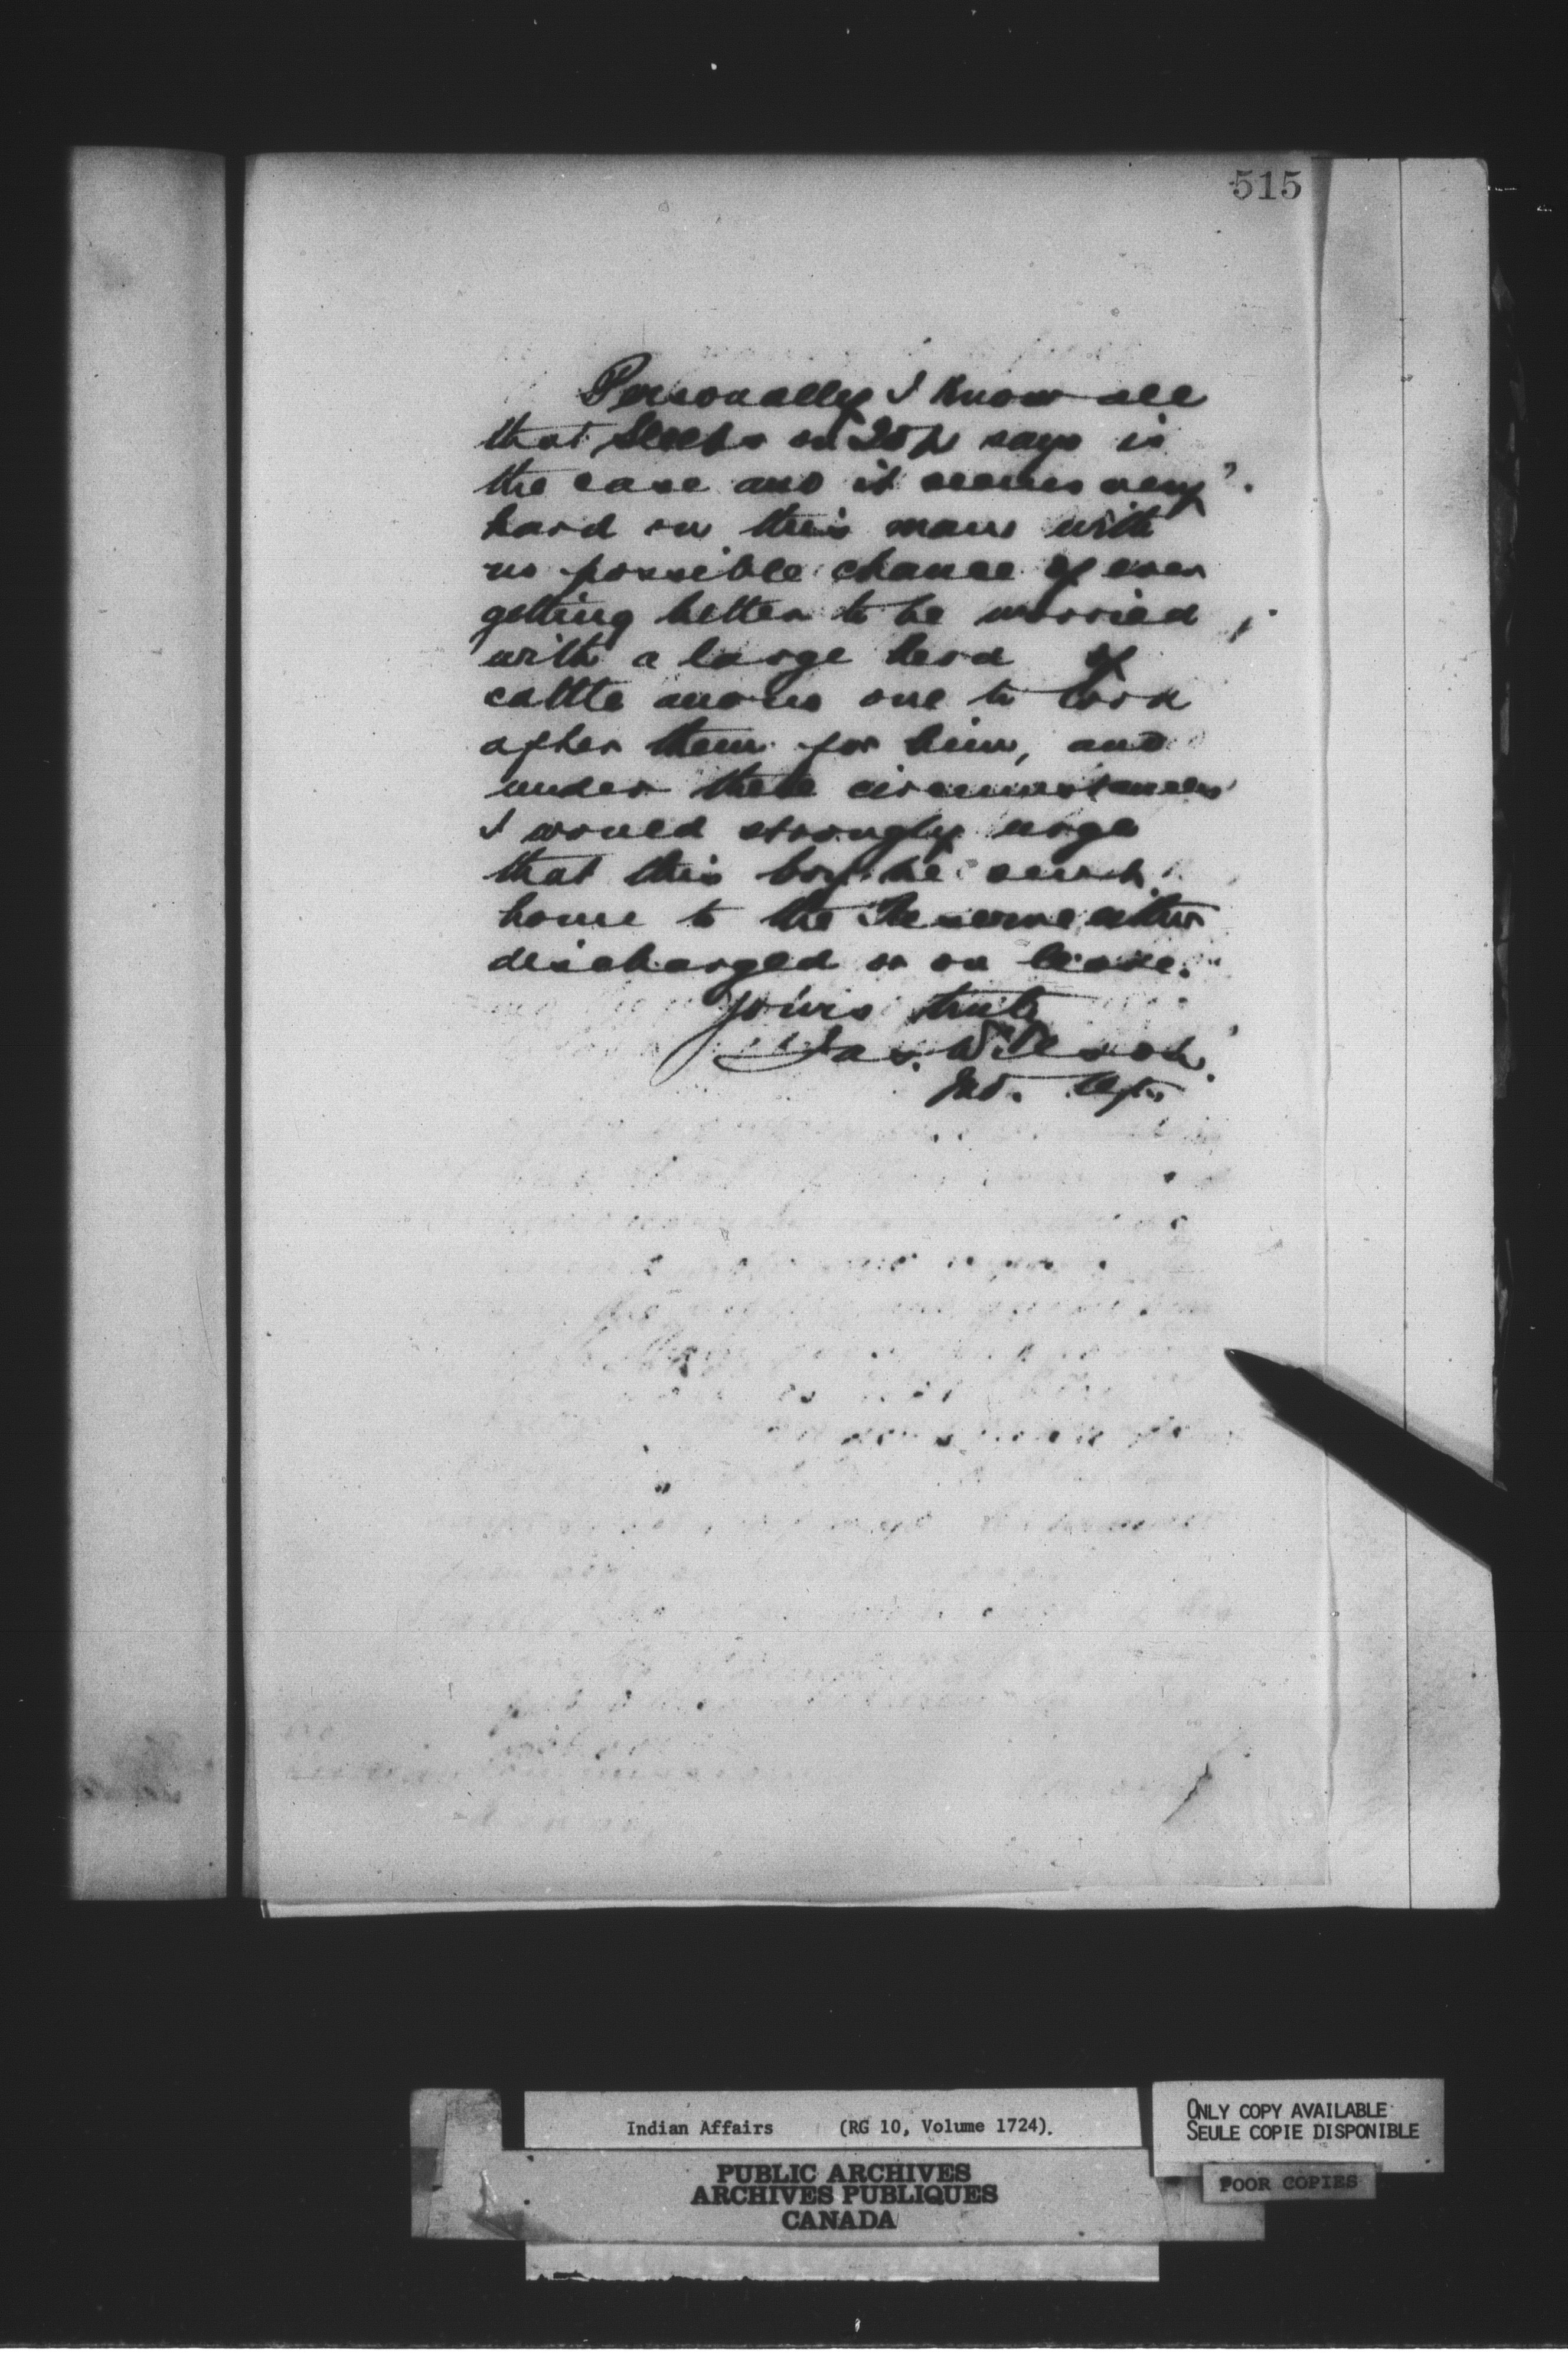 515
Personally I know all
that Sleeps on Top says is
the case and it seems very
hard on this man with
no possible chance of ever
getting better to be worried
with a large herd of
cattle and no one to look
after them for him, and
under these circumstances
I would strongly urge
that this boy be sent
home to the Reserve either
discharged or on leave.
Yours truly
Jas. Wilson
Ind. Agt.
Indian Affairs (RG 10, Volume 1724).
PUBLIC ARCHIVES
ARCHIVES PUBLIQUES
CANADA
ONLY COPY AVAILABLE
SEULE COPIE DISPONIBLE
POOR COPIES